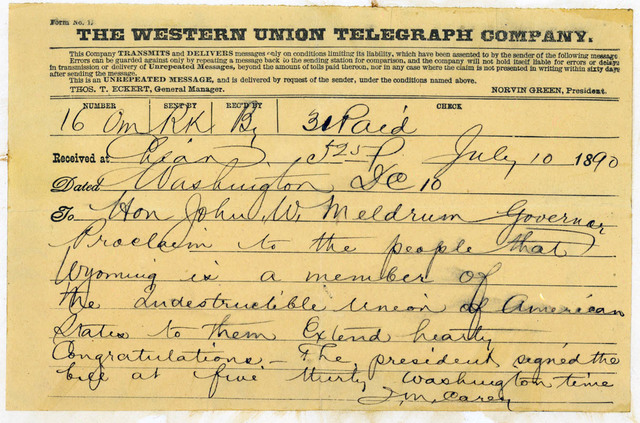 Form No. 1.
THE WESTERN UNION TELEGRAPH COMPANY.
This Company TRANSMITS and DELIVERS messages only on conditions limiting its liability, which have been assented to by the sender of the following message.
Errors can be guarded against only by repeating a message back to the sending station for comparison, and the company will not hold itself liable for errors or delays
in transmission or delivery of Unrepeated Messages, beyond the amount of tolls paid thereon, nor in any case where the claim is not presented in writing within sixty days
after sending the message.
This is an UNREPEATED MESSAGE, and is delivered by request of the sender, under the conditions named above.
THOS. T. ECKERT, General Manager. NORVIN GREEN, President.
NUMBER SENT BY REC'D BY CHECK
16 Om RK By 31 Paid
Received at 525 P July 10 1890
Dated Washington DC 10
To Hon John W. Meldrum Governor
Proclaim to the people that
Wyoming is a member of
the indestructible Union of American
States to them Extend hearty
Congratulations - The president signed the
bill at five thirty Washington time
J.M. Carey